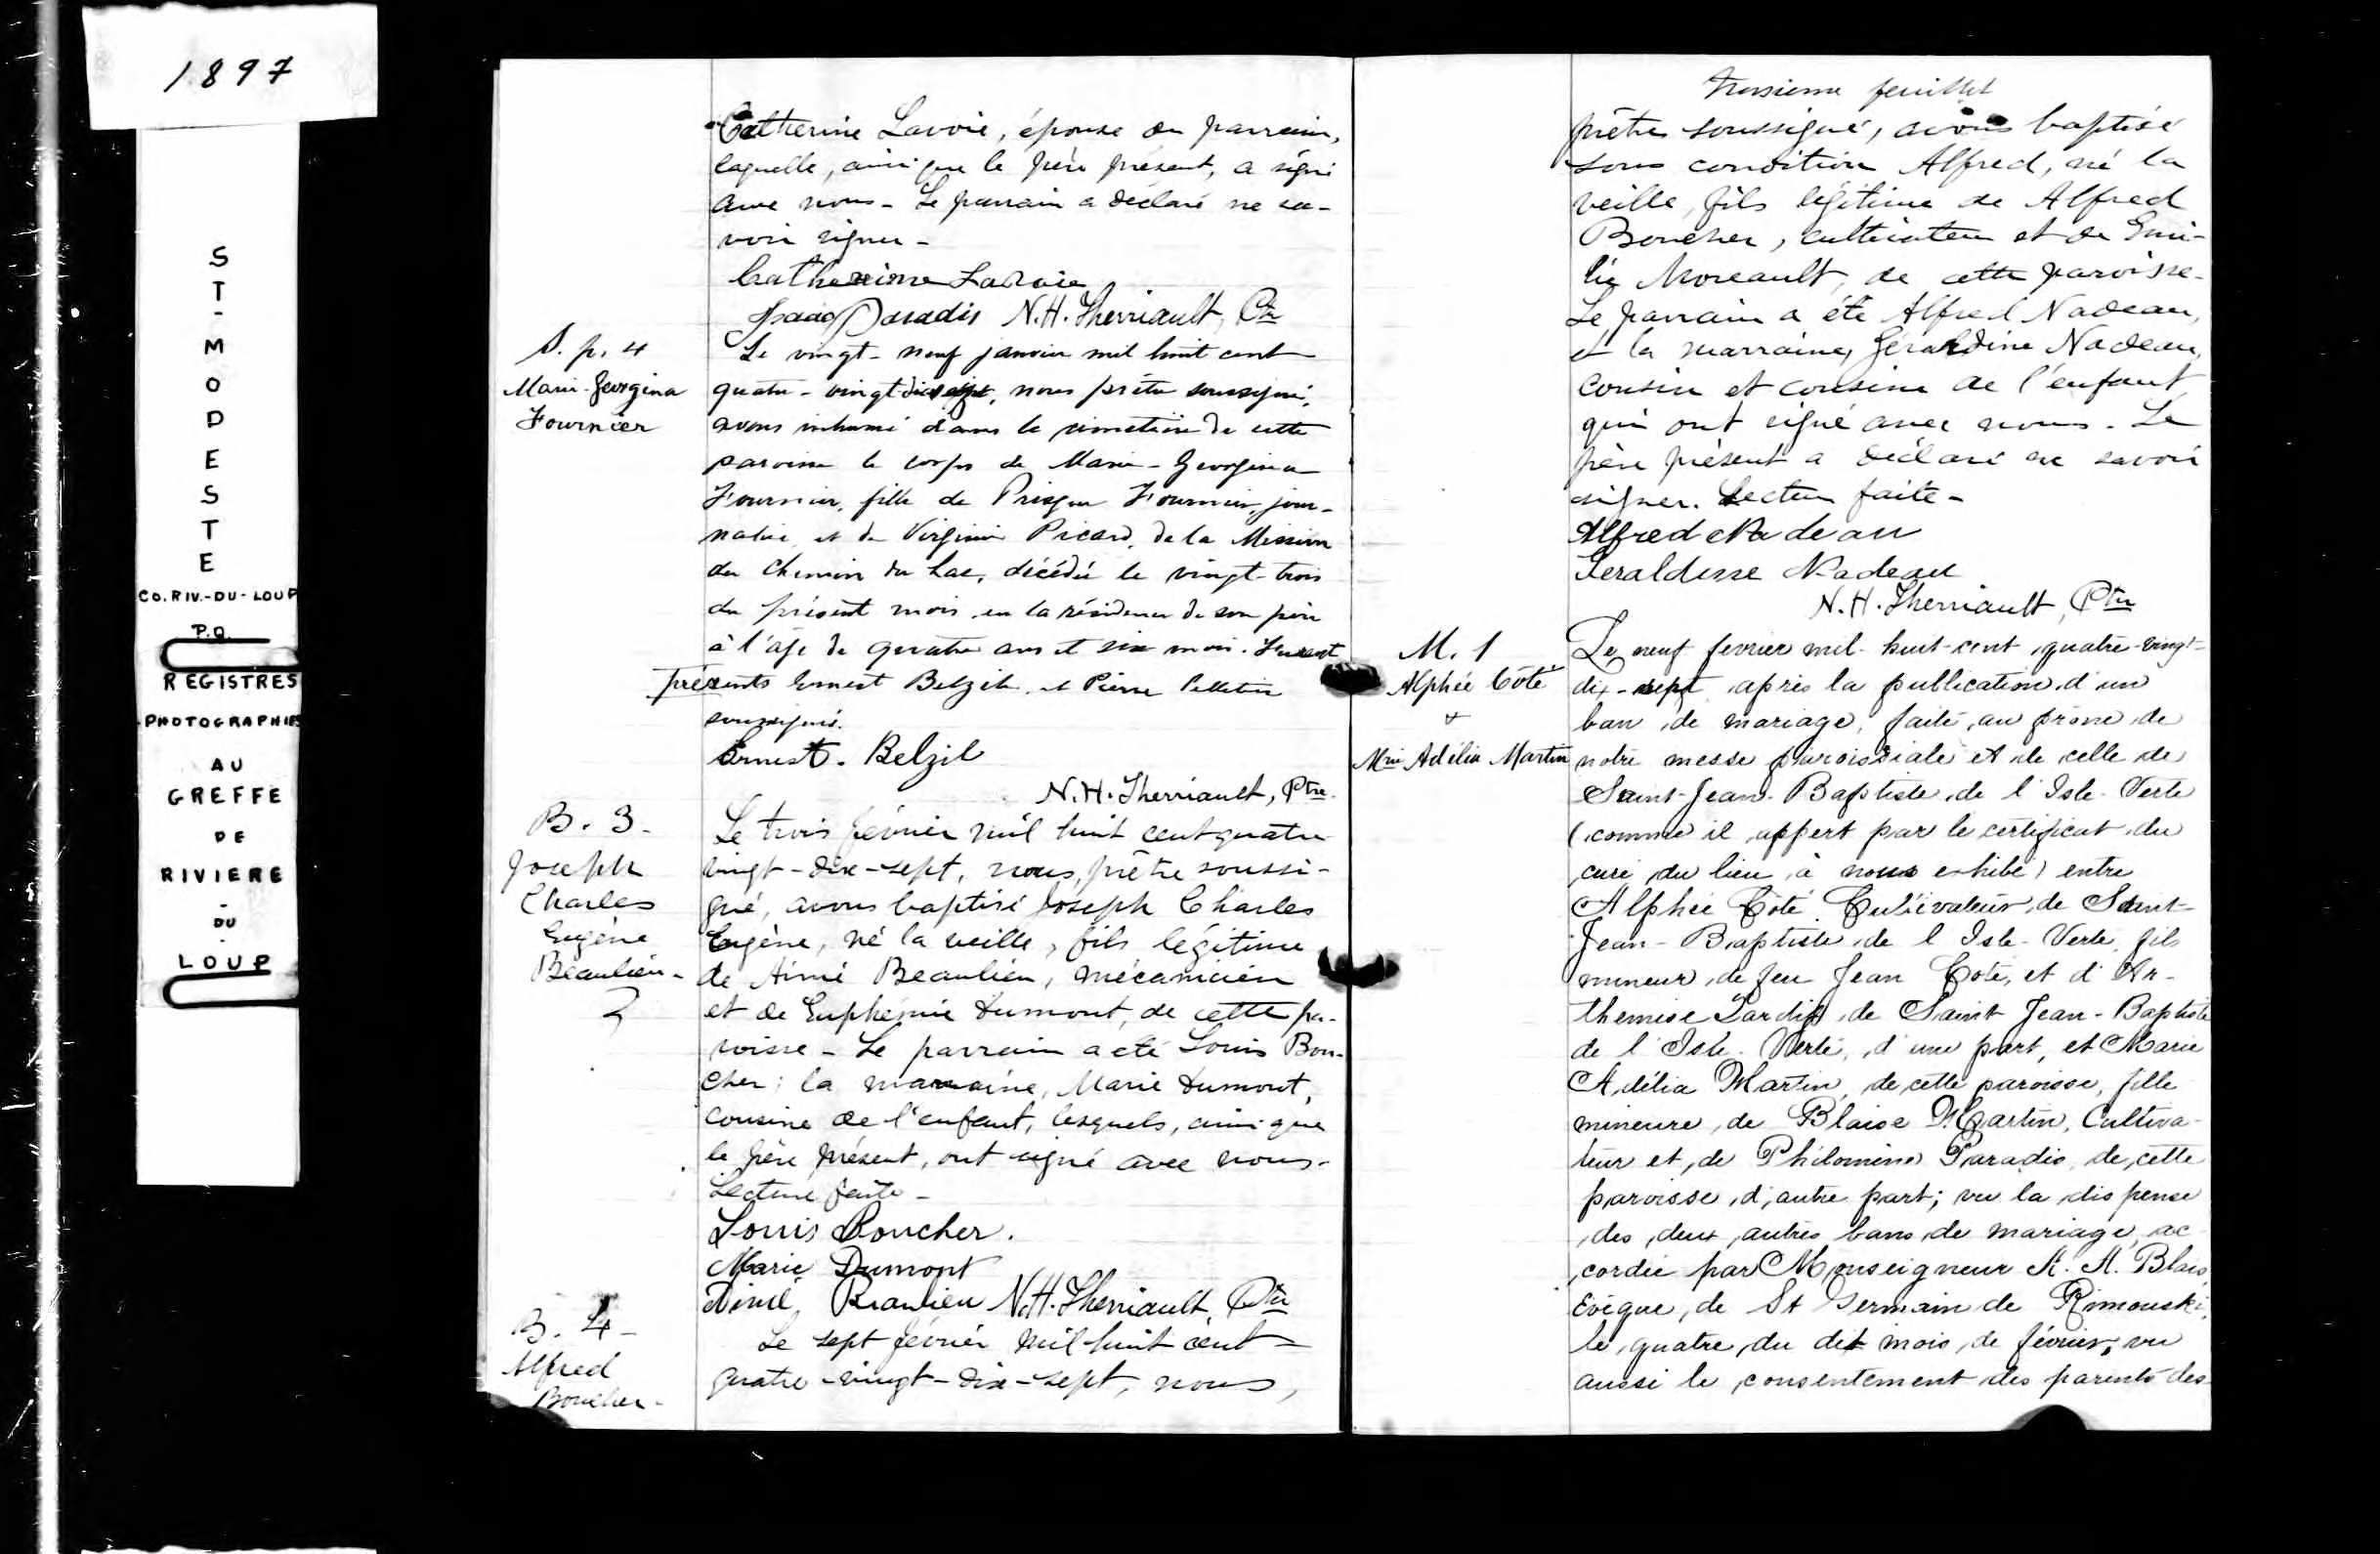 1897
ST-MODESTE
CO. RIV.-DU-LOUP
P.Q.
REGISTRES
PHOTOGRAPHIES
AU
GREFFE
DE
RIVIERE
-
DU
-
LOUP
Catherine Lavoie, épouse du parrain,
laquelle, ainsi que le père présent, a signé
avec nous - Le parrain a déclaré ne sa-
voir signer -
Catherinne Lavoie
Isaac Paradis N.H. Therriault, Ptr
S. p. 4
Marie-Georgina
Fournier
Le vingt-neuf janvier mil huit cent
quatre-vingt-dix sept, nous prêtre soussigné,
avons inhumé dans le cimetière de cette
paroisse le corps de Marie-Georgina
Fournier, fille de Prisque Fournier, jour-
nalier, et de Virginie Picard, de la Mission
du Chemin du Lac, décédée le vingt-trois
du présent mois en la résidence de son père
à l'âge de quatre ans et six mois. Furent
présents Ernest Belzil et Pierre Pelletier
soussignés.
Ernest. Belzil
N.H. Therriault, Ptre.
B. 3 -
Joseph
Charles
Eugène
Beaulieu -
Le trois février mil huit cent quatre
vingt-dix-sept, nous, prêtre soussi-
gné, avons baptisé Joseph Charles
Eugène, né la veille, fils légitime
de Aimé Beaulieu, mécanicien
et de Euphémie Dumont, de cette pa-
roisse - Le parrain a été Louis Bou-
cher; la marraine, Marie Dumont,
cousine de l'enfant, lesquels, ainsi que
le père présent, ont signé avec nous -
Lecture faite -
Louis Boucher.
Marie Dumont
Aimé Beaulieu N.H. Therriault, Ptr
B. 4 -
Alfred
Boucher -
Le sept février mil huit cent
quatre-vingt-dix-sept, nous,
troisieme feuillet
prêtre soussigné, avons baptisé
sous condition Alfred, né la
veille, fils légitime de Alfred
Boucher, cultivateur et de Emi-
lie Moreault, de cette paroisse -
Le parrain a été Alfred Nadeau,
et la marraine, Géraldine Nadeau,
cousin et cousine de l'enfant,
qui ont signé avec nous - Le
père présent a déclaré ne savoir
signer. Lecture faite -
Alfred Nadeau
Geraldine Nadeau
N.H. Therriault, Ptr
M. 1
Alphée Côté
+
Mrie Adélia Martin
Le neuf fevrier mil-huit-cent quatre-vingt-
dix-sept après la publication d'un
ban de mariage, faite au prône de
notre messe paroissiale et de celle de
Saint-Jean-Baptiste de l'Isle-Verte
(comme il appert par le certificat du
curé du lieu à nous exhibé) entre
Alphée Côté Cultivateur de Saint-
Jean-Baptiste de l'Isle-Verte, fils
mineur de feu Jean Coté, et d'Ar-
themise Tardif, de Saint Jean-Baptiste
de l'Isle-Verte, d'une part, et Marie
Adélia Martin, de cette paroisse, fille
mineure de Blaise Martin, Cultiva-
teur et de Philomène Paradis de cette
paroisse d'autre part; vu la dispense
des deux autres bans de mariage ac
cordée par Monseigneur A. A. Blais
Evêque de St Germain de Rimouski,
le quatre du dit mois de février, vu
aussi le consentement des parents des